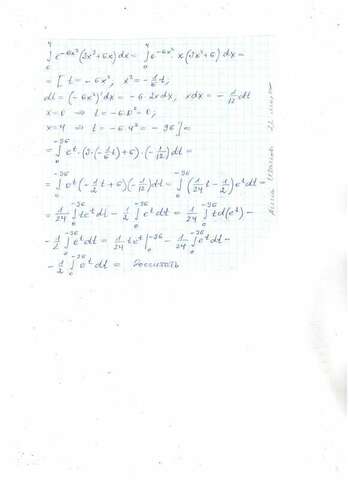 ∫₀⁴ e^(-6x²)(3x³+6x)dx = ∫₀⁴ e^(-6x²) x(3x²+6)dx =
= [ t = -6x², x² = -1/6 t;
dt = (-6x²)'dx = -6·2xdx, xdx = -1/12 dt
x=0 ⇒ t = -6·0² = 0;
x=4 ⇒ t = -6·4² = -96 ] =
= ∫₀^(-96) e^t·(3·(-1/6 t)+6)·(-1/12)dt =
= ∫₀^(-96) e^t(-1/2 t+6)(-1/12)dt = ∫₀^(-96) (1/24 t - 1/2)e^t dt =
= 1/24 ∫₀^(-96) te^t dt - 1/2 ∫₀^(-96) e^t dt = 1/24 ∫₀^(-96) td(e^t) -
- 1/2 ∫₀^(-96) e^t dt = 1/24 te^t |₀^(-96) - 1/24 ∫₀^(-96) e^t dt -
- 1/2 ∫₀^(-96) e^t dt =